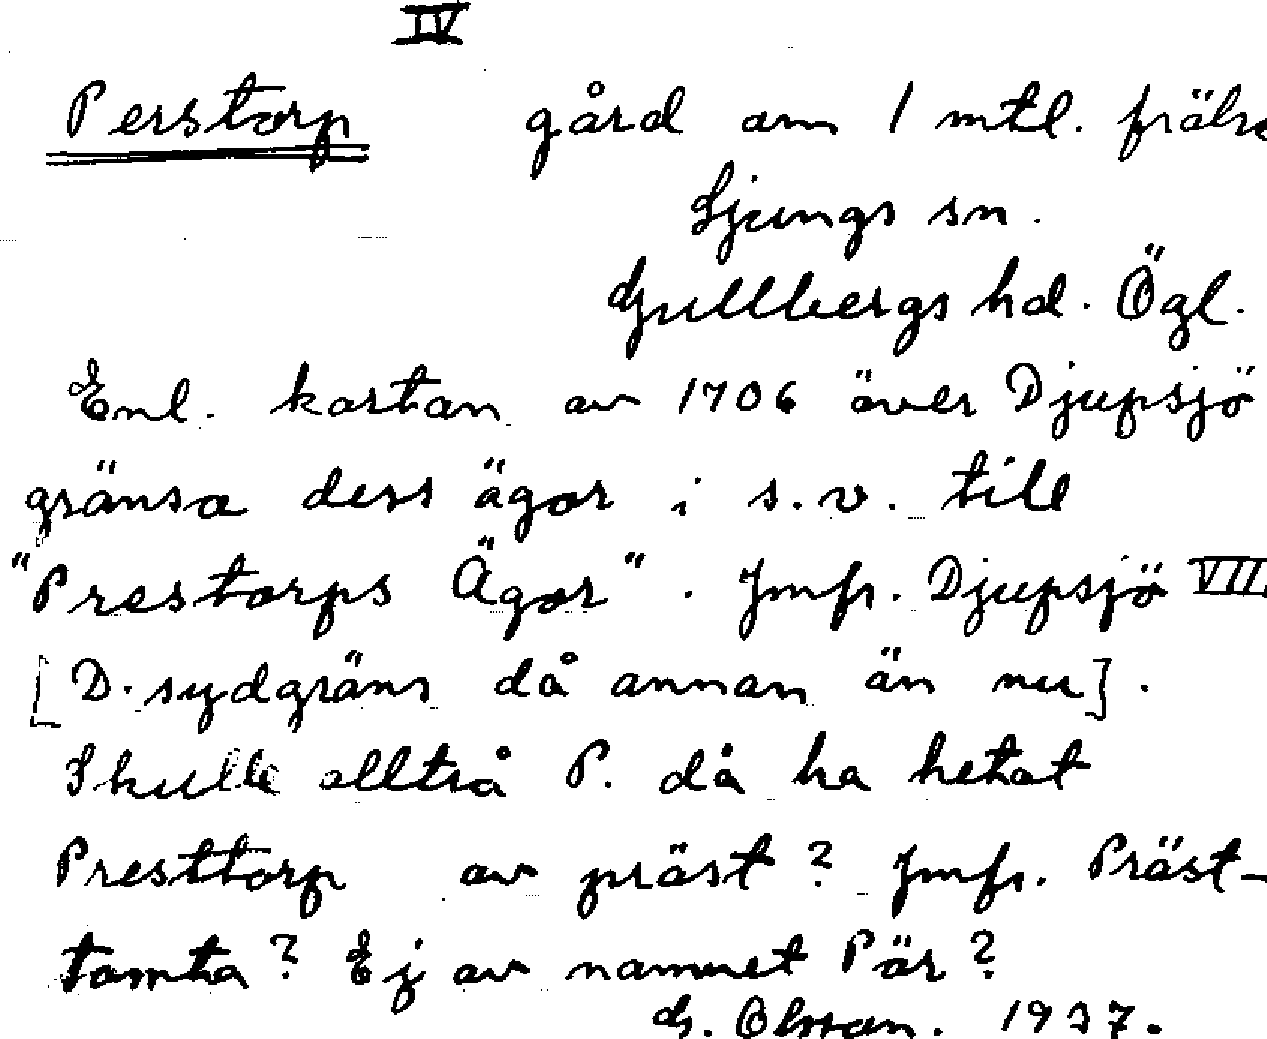 IV
Perstorp gård om 1 mtl. frälse
Ljungs sn.
Gullbergs hd. Ögl.
Enl. kartan av 1706 över Djupsjö
gränsa dess ägor i s.v. till
"Prestorps Ägor". Jmfr. Djupsjö VII.
[D. sydgräns då annan än nu].
Skulle alltså P. då ha hetat
Presttorp av präst? Jmfr. Präst-
tomta? Ej av namnet Pär?
G. Olsson. 1937.